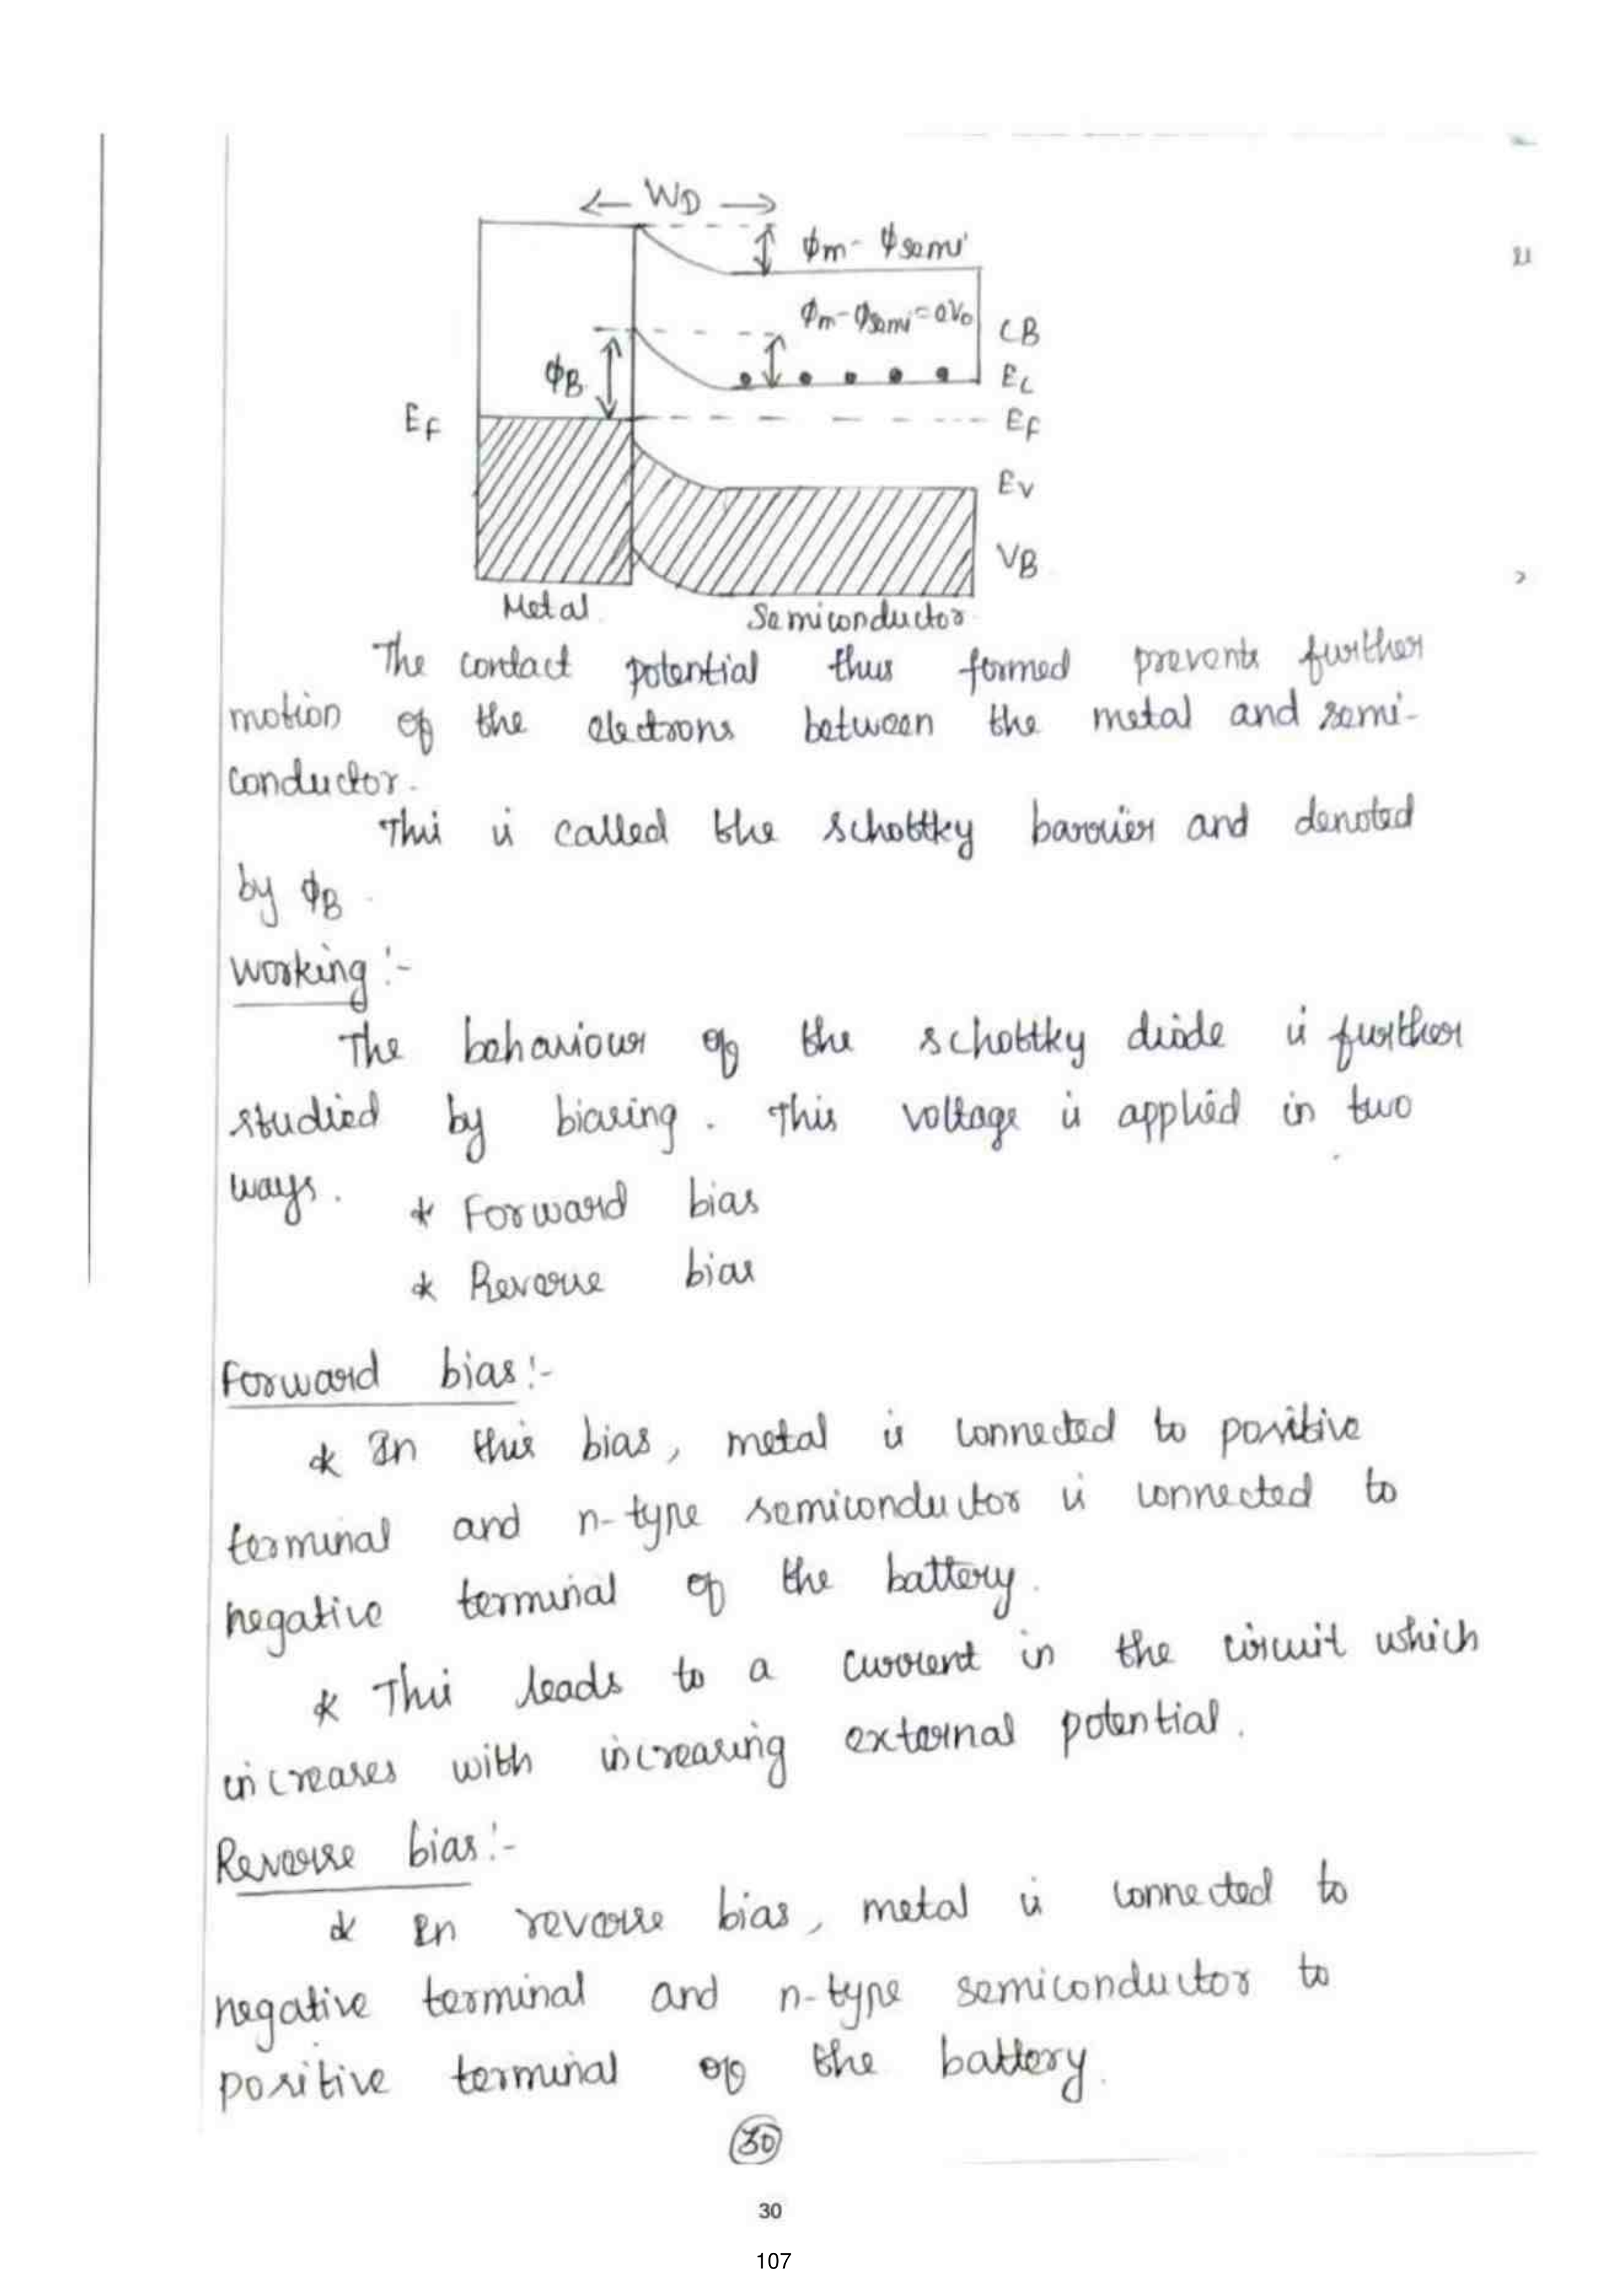 ← WD →
ϕm - ϕsemi
ϕm - ϕsemi = eV₀
CB
ϕB
EC
EF
EF
EV
VB
Metal
Semiconductor
The contact potential thus formed prevents further
motion of the electrons between the metal and semi-
conductor.
This is called the schottky barrier and denoted
by ϕB.
Working :-
The behaviour of the schottky diode is further
studied by biasing. This voltage is applied in two
ways.
* Forward bias
* Reverse bias
Forward bias :-
* In this bias, metal is connected to positive
terminal and n-type semiconductor is connected to
negative terminal of the battery.
* This leads to a current in the circuit which
increases with increasing external potential.
Reverse bias :-
* In reverse bias, metal is connected to
negative terminal and n-type semiconductor to
positive terminal of the battery.
30
30
107